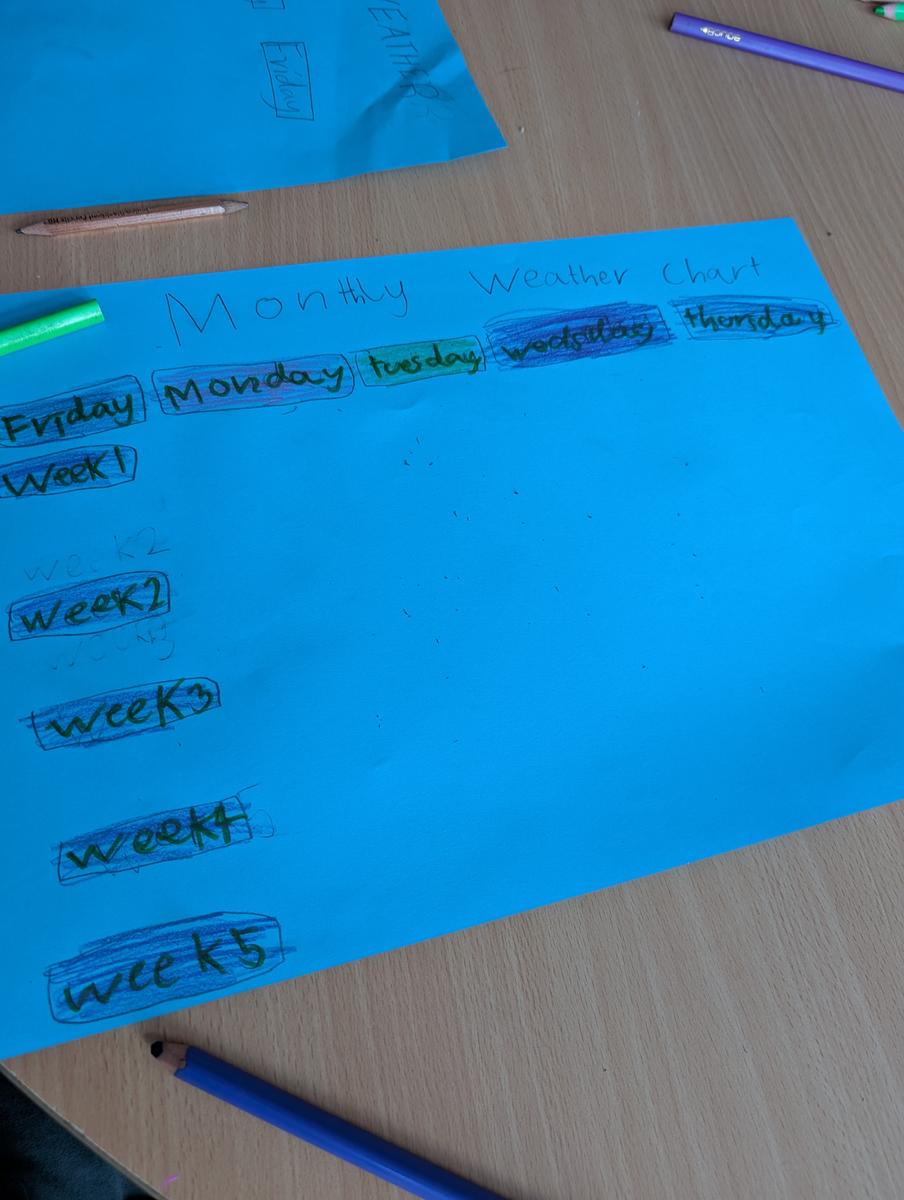 WEATHER
Friday
Monthly Weather Chart
Friday Monday tuesday wedsday thorsday
Week1
week2
Week2
week3
week4
week5